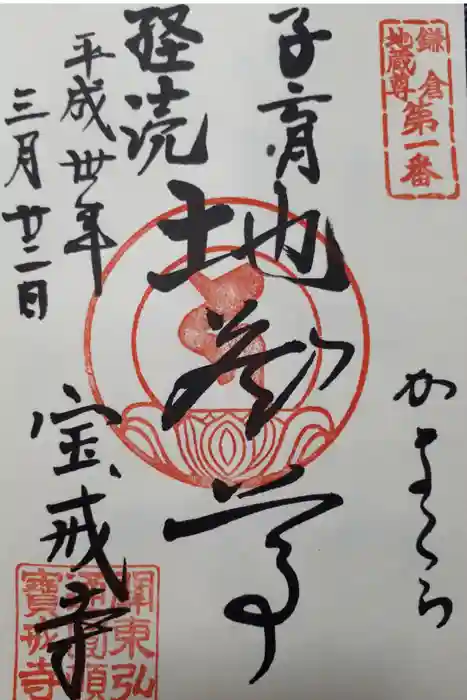 鎌倉
地蔵尊
第一番
かまくら
子育
地蔵尊
経読
平成卅年
三月廿二日
宝戒寺
寶戒寺